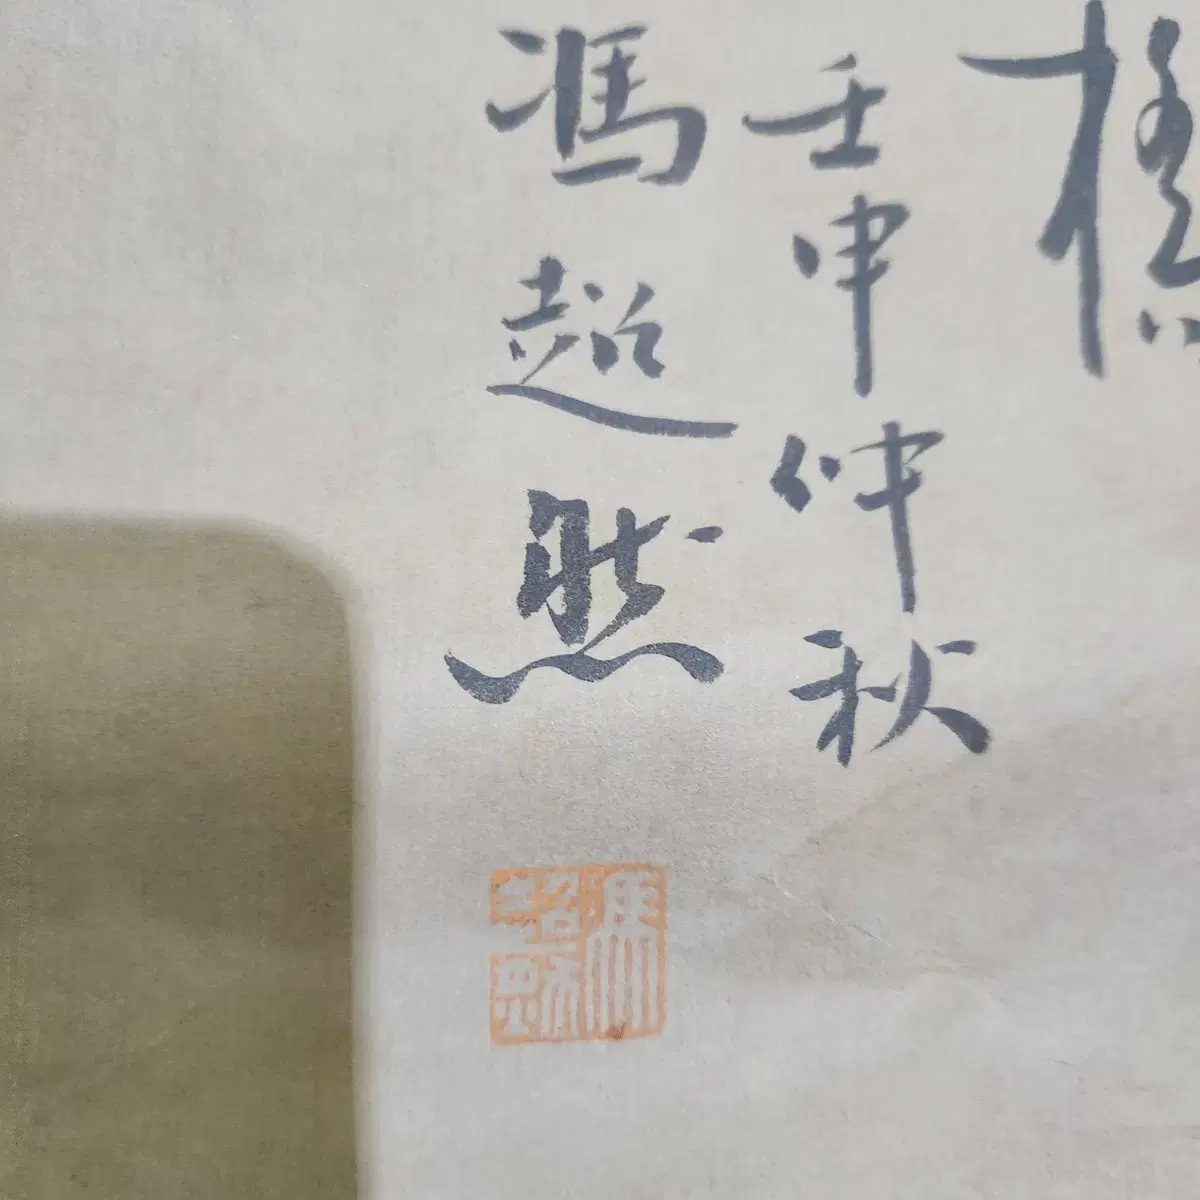 壬申仲秋
馮超然
馮超然